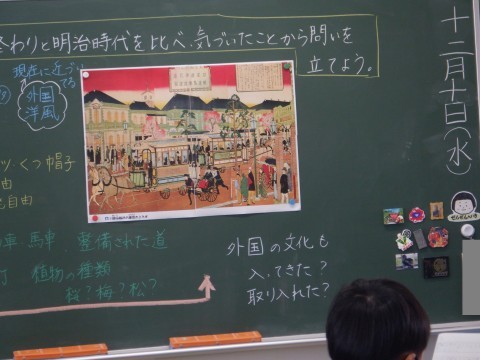 終わりと明治時代を比べ、気づいたことから問いを
立てよう。
十二月十日(水)
現在に近づい
てる
外国
洋風
ツ、くつ帽子
由
自由
車、馬車、整備された道
灯 植物の種類
桜?梅?松?
外国の文化も
入ってきた?
取り入れた?